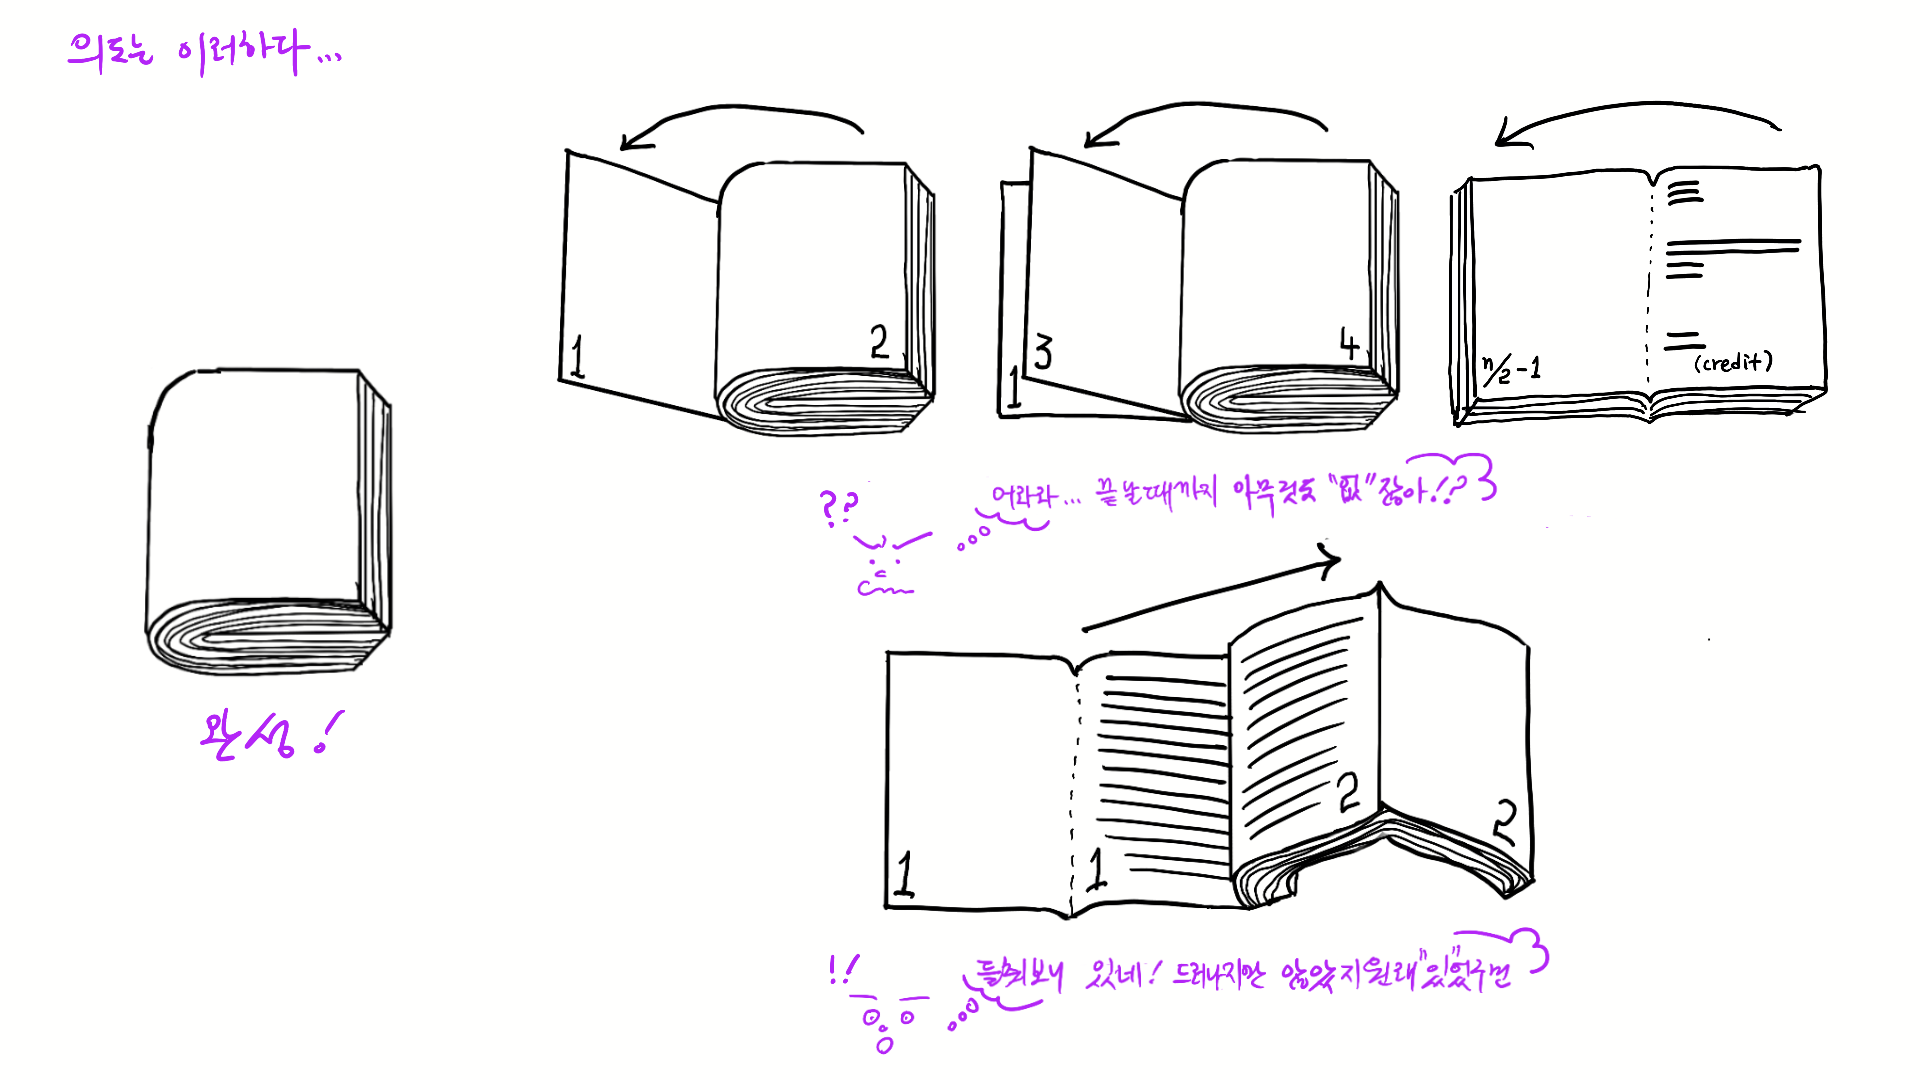 의도는 이러하다...
1
2
1
3
4
n/2-1
(credit)
??
어라라... 끝날때까지 아무것도 "없"잖아!?
완성!
1
1
2
2
!!
들춰보니 있네! 드러나지만 않았지 원래 "있"었구먼